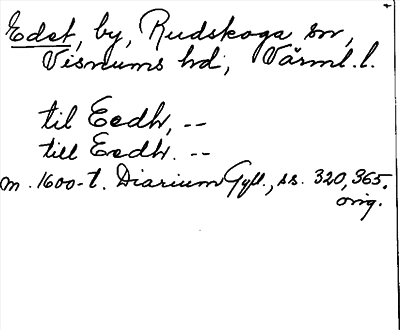 Edet, by, Rudskoga sn,
Visnums hd, Värml. l.
till Eedh, --
till Eedh. --
m. 1600-t. Diarium Gyll., ss. 320, 365.
orig.